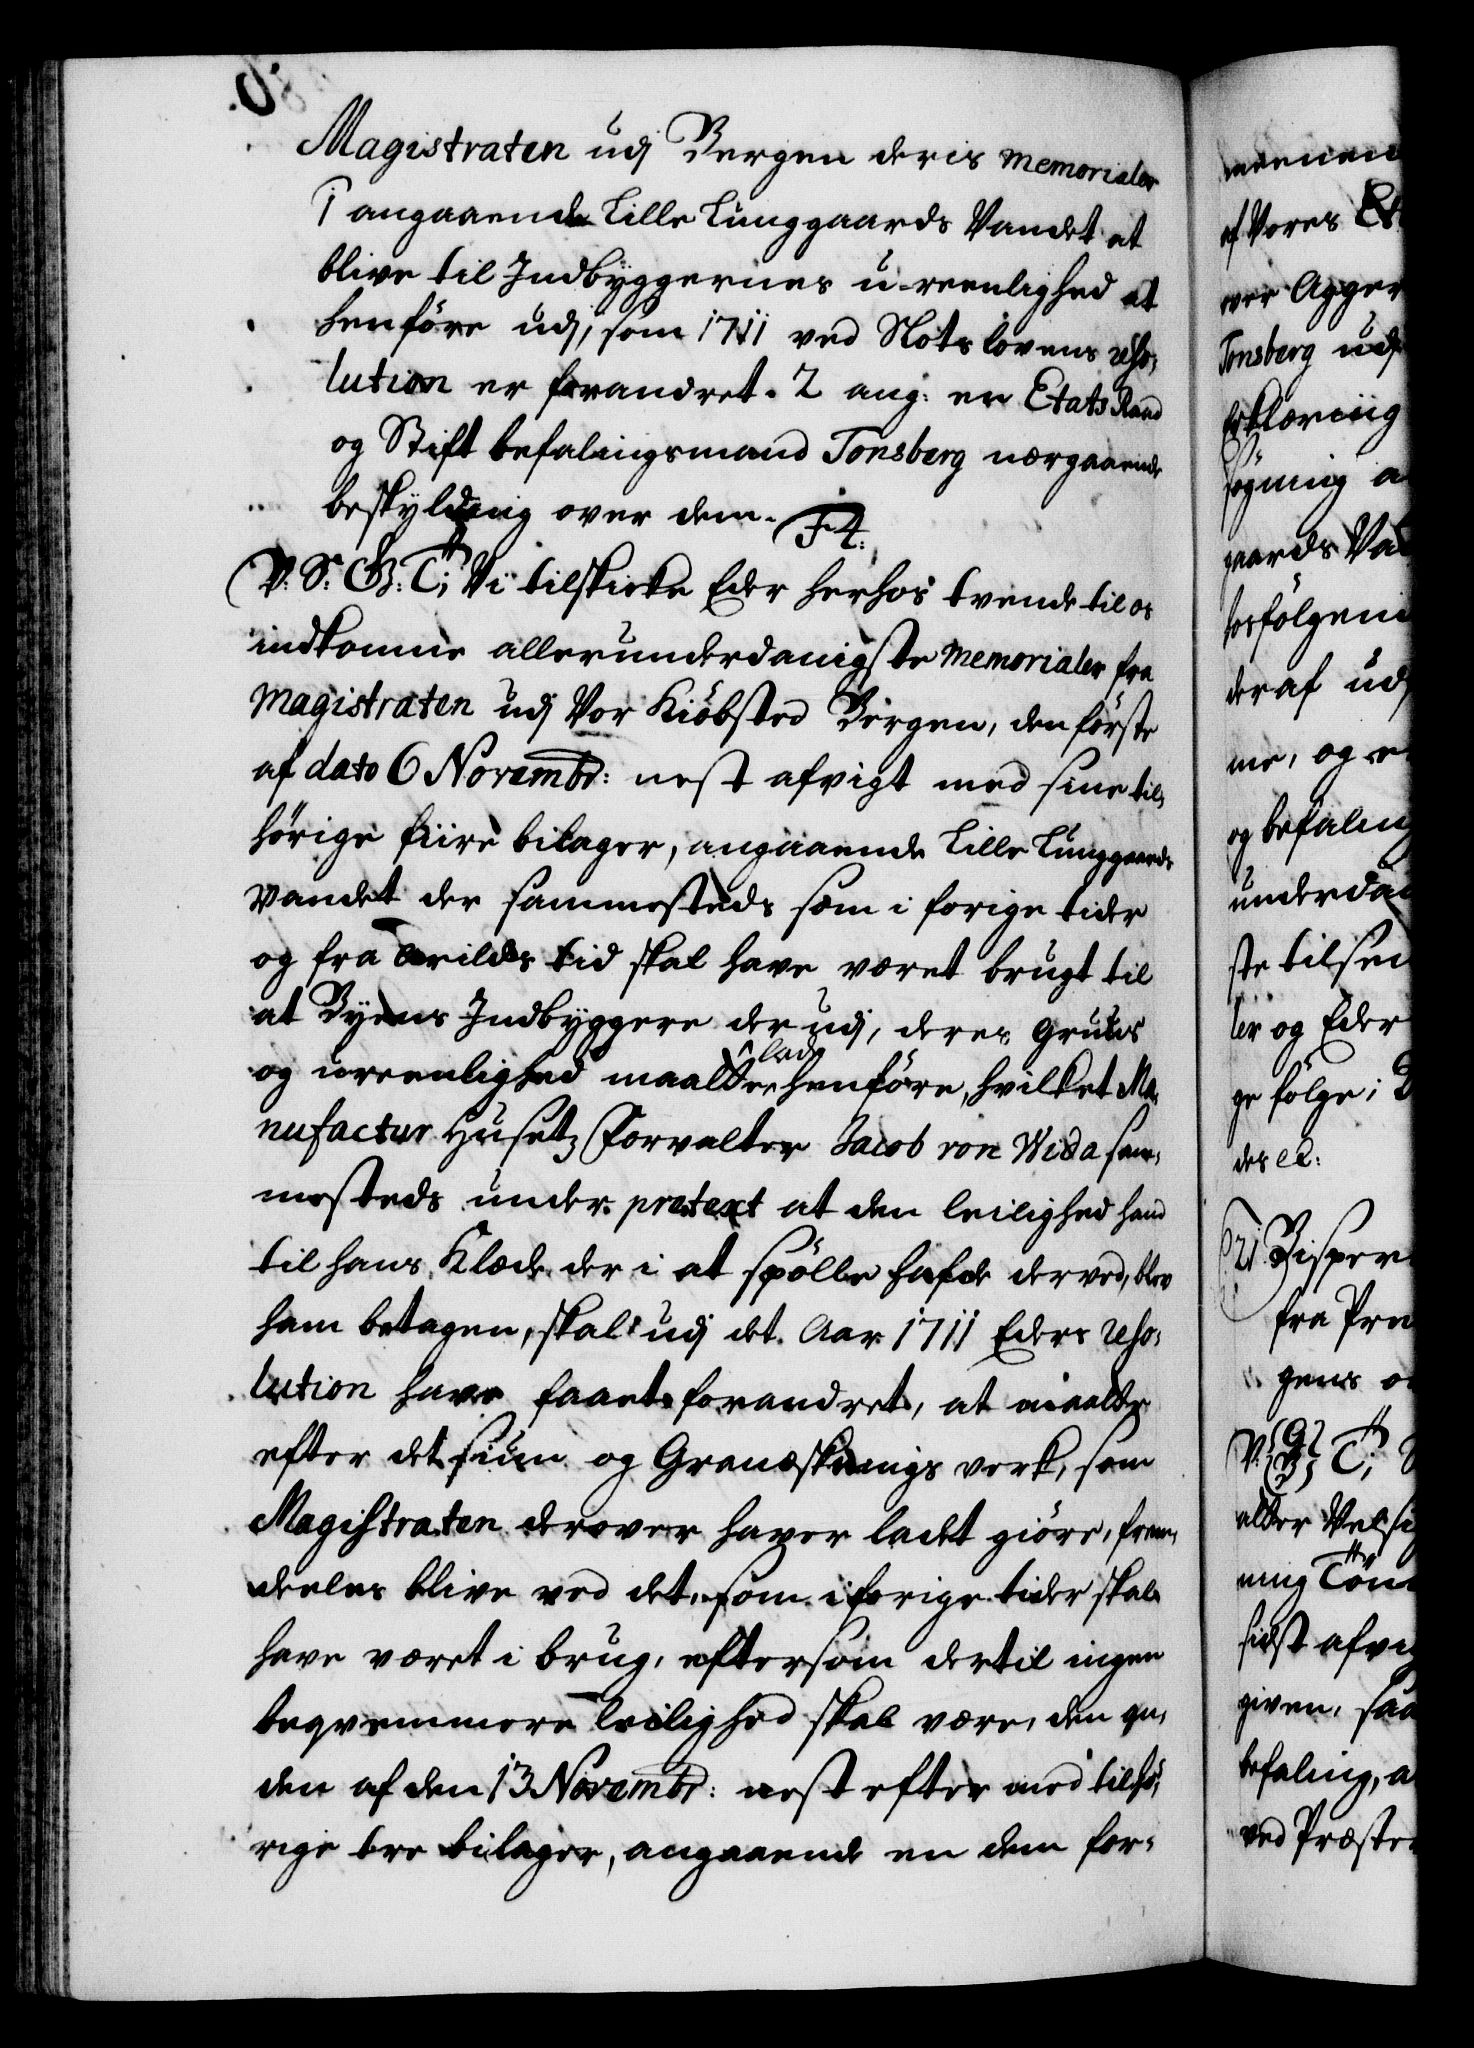 Magistraten udj Bergen deris Memorialer
1 angaaende Lille Lunggaards Vandet at
blive til Indbyggernes u-reenlighed at
henföre udj, som 1711 ved Slotslovens reso-
lution er forandret. 2 ang: en Etats Raad
og Stift befalingsmand Tonsberg nærgaaende
beskylding over dem. F4.
V. S. G. T; Vi tilskicke Eder herhos tvende til os
indkomne allerunderdanigste Memorialer fra
Magistraten udj Vor Kiöbsted Bergen, den förste
af dato 6 Novembr: nest afvigt med sine til-
hörige fiire bilager, angaaende Lille Lunggaards
Vandet der sammesteds som i forige tider
og fra Arilds tid skal have været brugt til
at Byens Indbyggere der udj, deres Gruus
og ureenlighed maatte lade henföre, hvilket Ma-
nufactur Husetz Forvalter Jacob von Wida sam-
mesteds under prætext at den leilighed hand
til hans Klæde der i at spölle hafde derved, blev
ham betagen, skal udj det Aar 1711 Eders reso-
lution have faaet forandret, at maatte
efter det siun og Gransknings verk, som
Magistraten derover haver ladet giöre, frem-
deeles blive ved det, som i forige tider skal
have været i brug, eftersom dertil ingen
beqvemmere leilighed skal være, den an-
den af den 13 Novembr: nest efter med tilhö-
rige tre bilager, angaaende en dem for-
af Vores
over Agger
Tonsberg udj
Erklæring
sögning
gaards
hosfölgende
deraf udj
me, og
og befaling
ste
ler og Eder
ge fölge;
des
21 Bispen
fra
V. G. B. T;
sidst
given,
befaling,
ved Præste